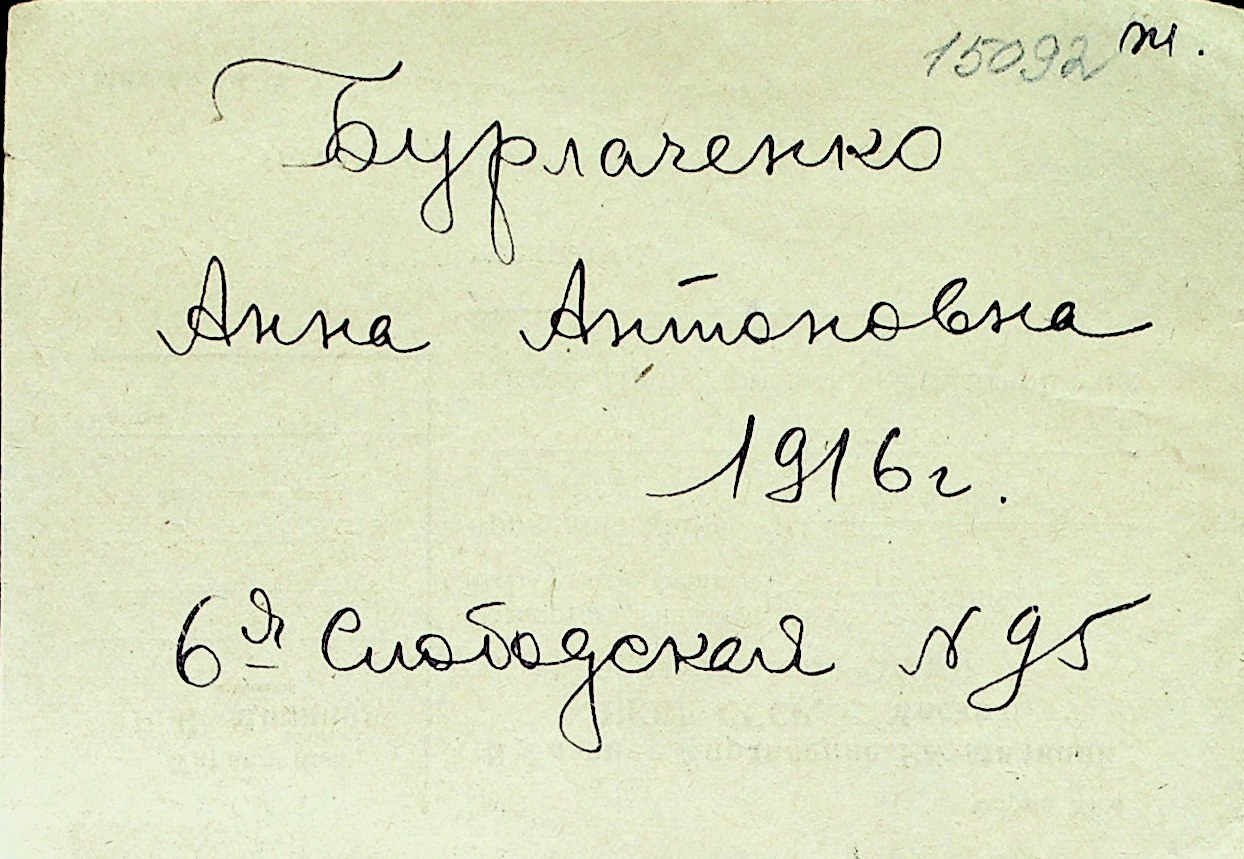 15092 ж.
Бурлаченко
Анна Антоновна
1916г.
6я Слободская N 95